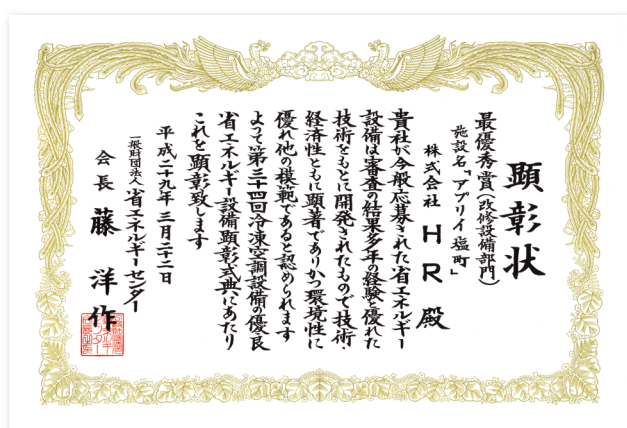 顕彰状
最優秀賞(改修設備部門)
施設名「アプリイ塩町」
株式会社 HR 殿
貴社が今般応募された省エネルギー
設備は審査の結果多年の経験と優れた
技術をもとに開発されたもので技術・
経済性ともに顕著でありかつ環境性に
優れ他の模範であると認められます
よって第三十四回冷凍空調設備の優良
省エネルギー設備顕彰式典にあたり
これを顕彰致します
平成二十九年三月二十二日
一般財団法人省エネルギーセンター
会長 藤洋作